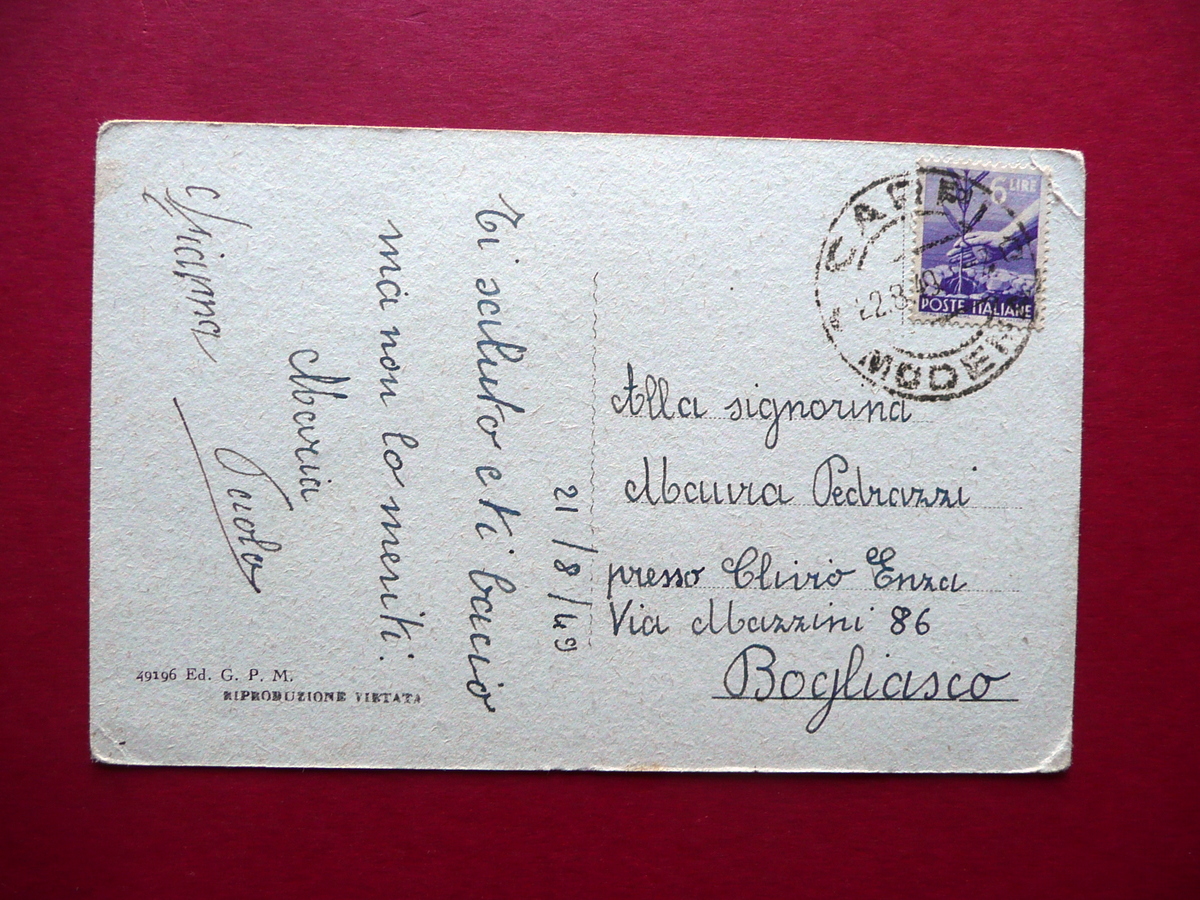 21/8/49
Ti saluto e ti bacio
ma non lo meriti.
Maria
Paolo
49196 Ed. G. P. M.
RIPRODUZIONE VIETATA
6 LIRE
POSTE ITALIANE
CARPI
22.8.49
MODENA
Alla signorina
Maura Pedrazzi
presso Clivio Enza
Via Mazzini 86
Bogliasco